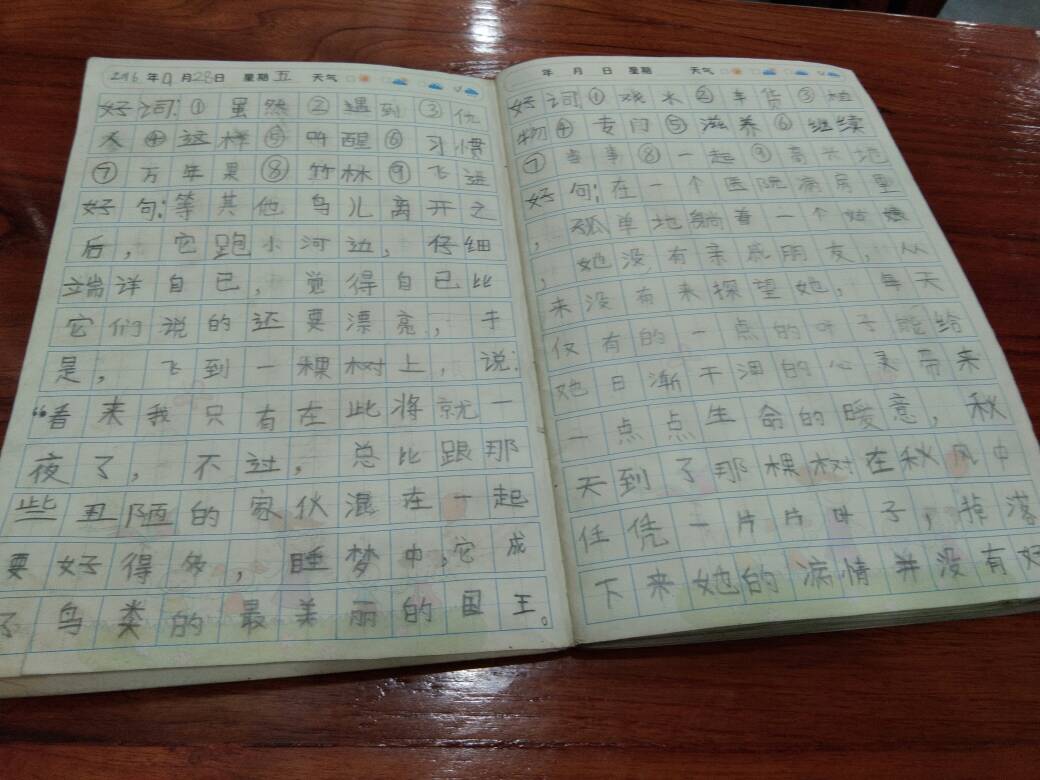 2016年10月28日 星期五 天气
好词:① 虽然 ② 遇到 ③ 仇
④ 这样 ⑤ 叫醒 ⑥ 习惯
⑦ 万年果 ⑧ 竹林 ⑨ 飞进
好句:等其他鸟儿离开之
后,它跑小河边,仔细
端详自已,觉得自已比
它们说的还要漂亮,于
是,飞到一棵树上,说:
“看来我只有在此将就一
夜了,不过,总比跟那
些丑陋的家伙混在一起
要好得多,睡梦中,它成
了鸟类的最美丽的国王。
年 月 日 星期 天气
好词:① 戏水 ② 车货 ③ 植
物 ④ 专门 ⑤ 滋养 ⑥ 继续
⑦ 当事 ⑧ 一起 ⑨ 高大地
好句:在一个医院病房里
,孤单地躺着一个姑娘
,她没有亲戚朋友,从
来没有来探望她,每天
仅有的一点的叶子能给
她日渐干涸的心灵带来
一点点生命的暖意,秋
天到了那棵树在秋风中
任凭一片片叶子,掉落
下来她的病情并没有好